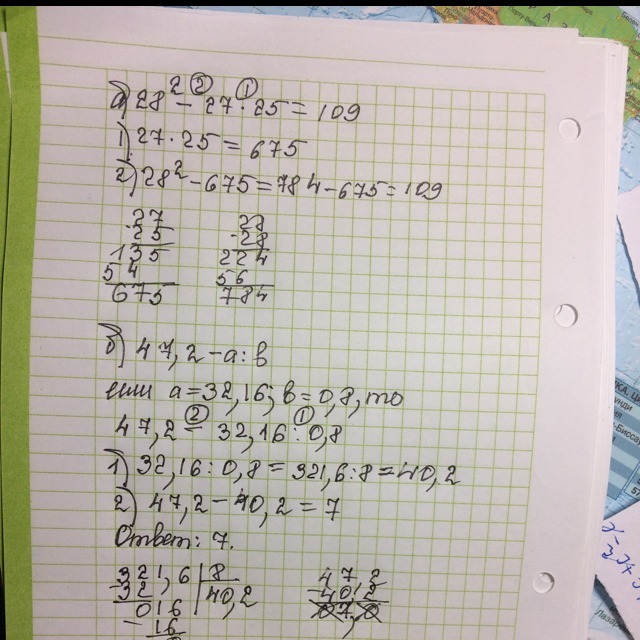 а) 28² − 27 · 25 = 109
② ①
1) 27 · 25 = 675
2) 28² − 675 = 784 − 675 = 109
27
· 25
135
54
675
28
· 28
224
56
784
б) 47,2 − а : в
если а = 32,16; в = 0,8, то
② ①
47,2 − 32,16 : 0,8
1) 32,16 : 0,8 = 321,6 : 8 = 40,2
2) 47,2 − 40,2 = 7
Ответ: 7.
321,6 | 8
32 | 40,2
016
− 16
0
47,2
40,2
07,0